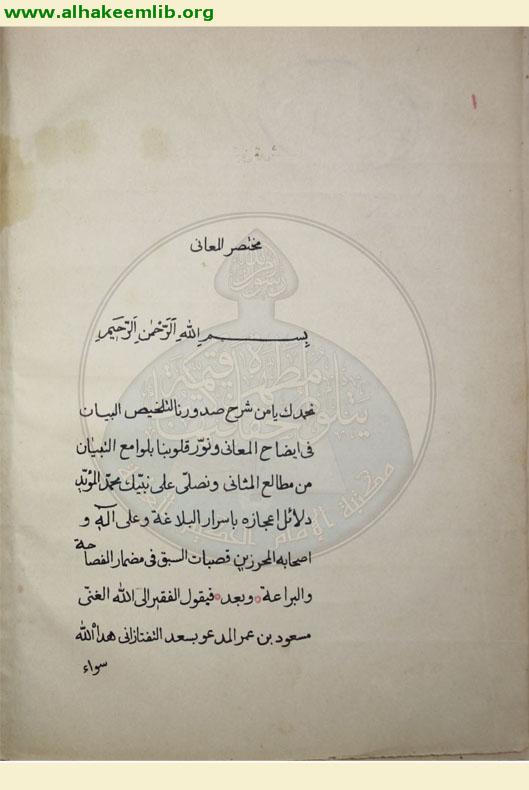 www.alhakeemlib.org
١
مختصر المعانى
بِســـــــمِ اللهِ اَلرَّحْمٰنِ اَلرَّحيمِ
نحمدك يا من شرح صدورنا لتلخيص البيان
فى ايضاح المعانى ونوّر قلوبنا بلوامع التبيان
من مطالع المثانى ونصلّى على نبيّك محمّد المؤيّد
دلائل اعجازه باسرار البلاغة وعلى آله و
اصحابه المحرزين قصبات السبق فى مضمار الفصاحة
والبراعة وبعد فيقول الفقير الى الله الغنىّ
مسعود بن عمر المدعو بسعد التفتازانى هداٰ الله
سواء